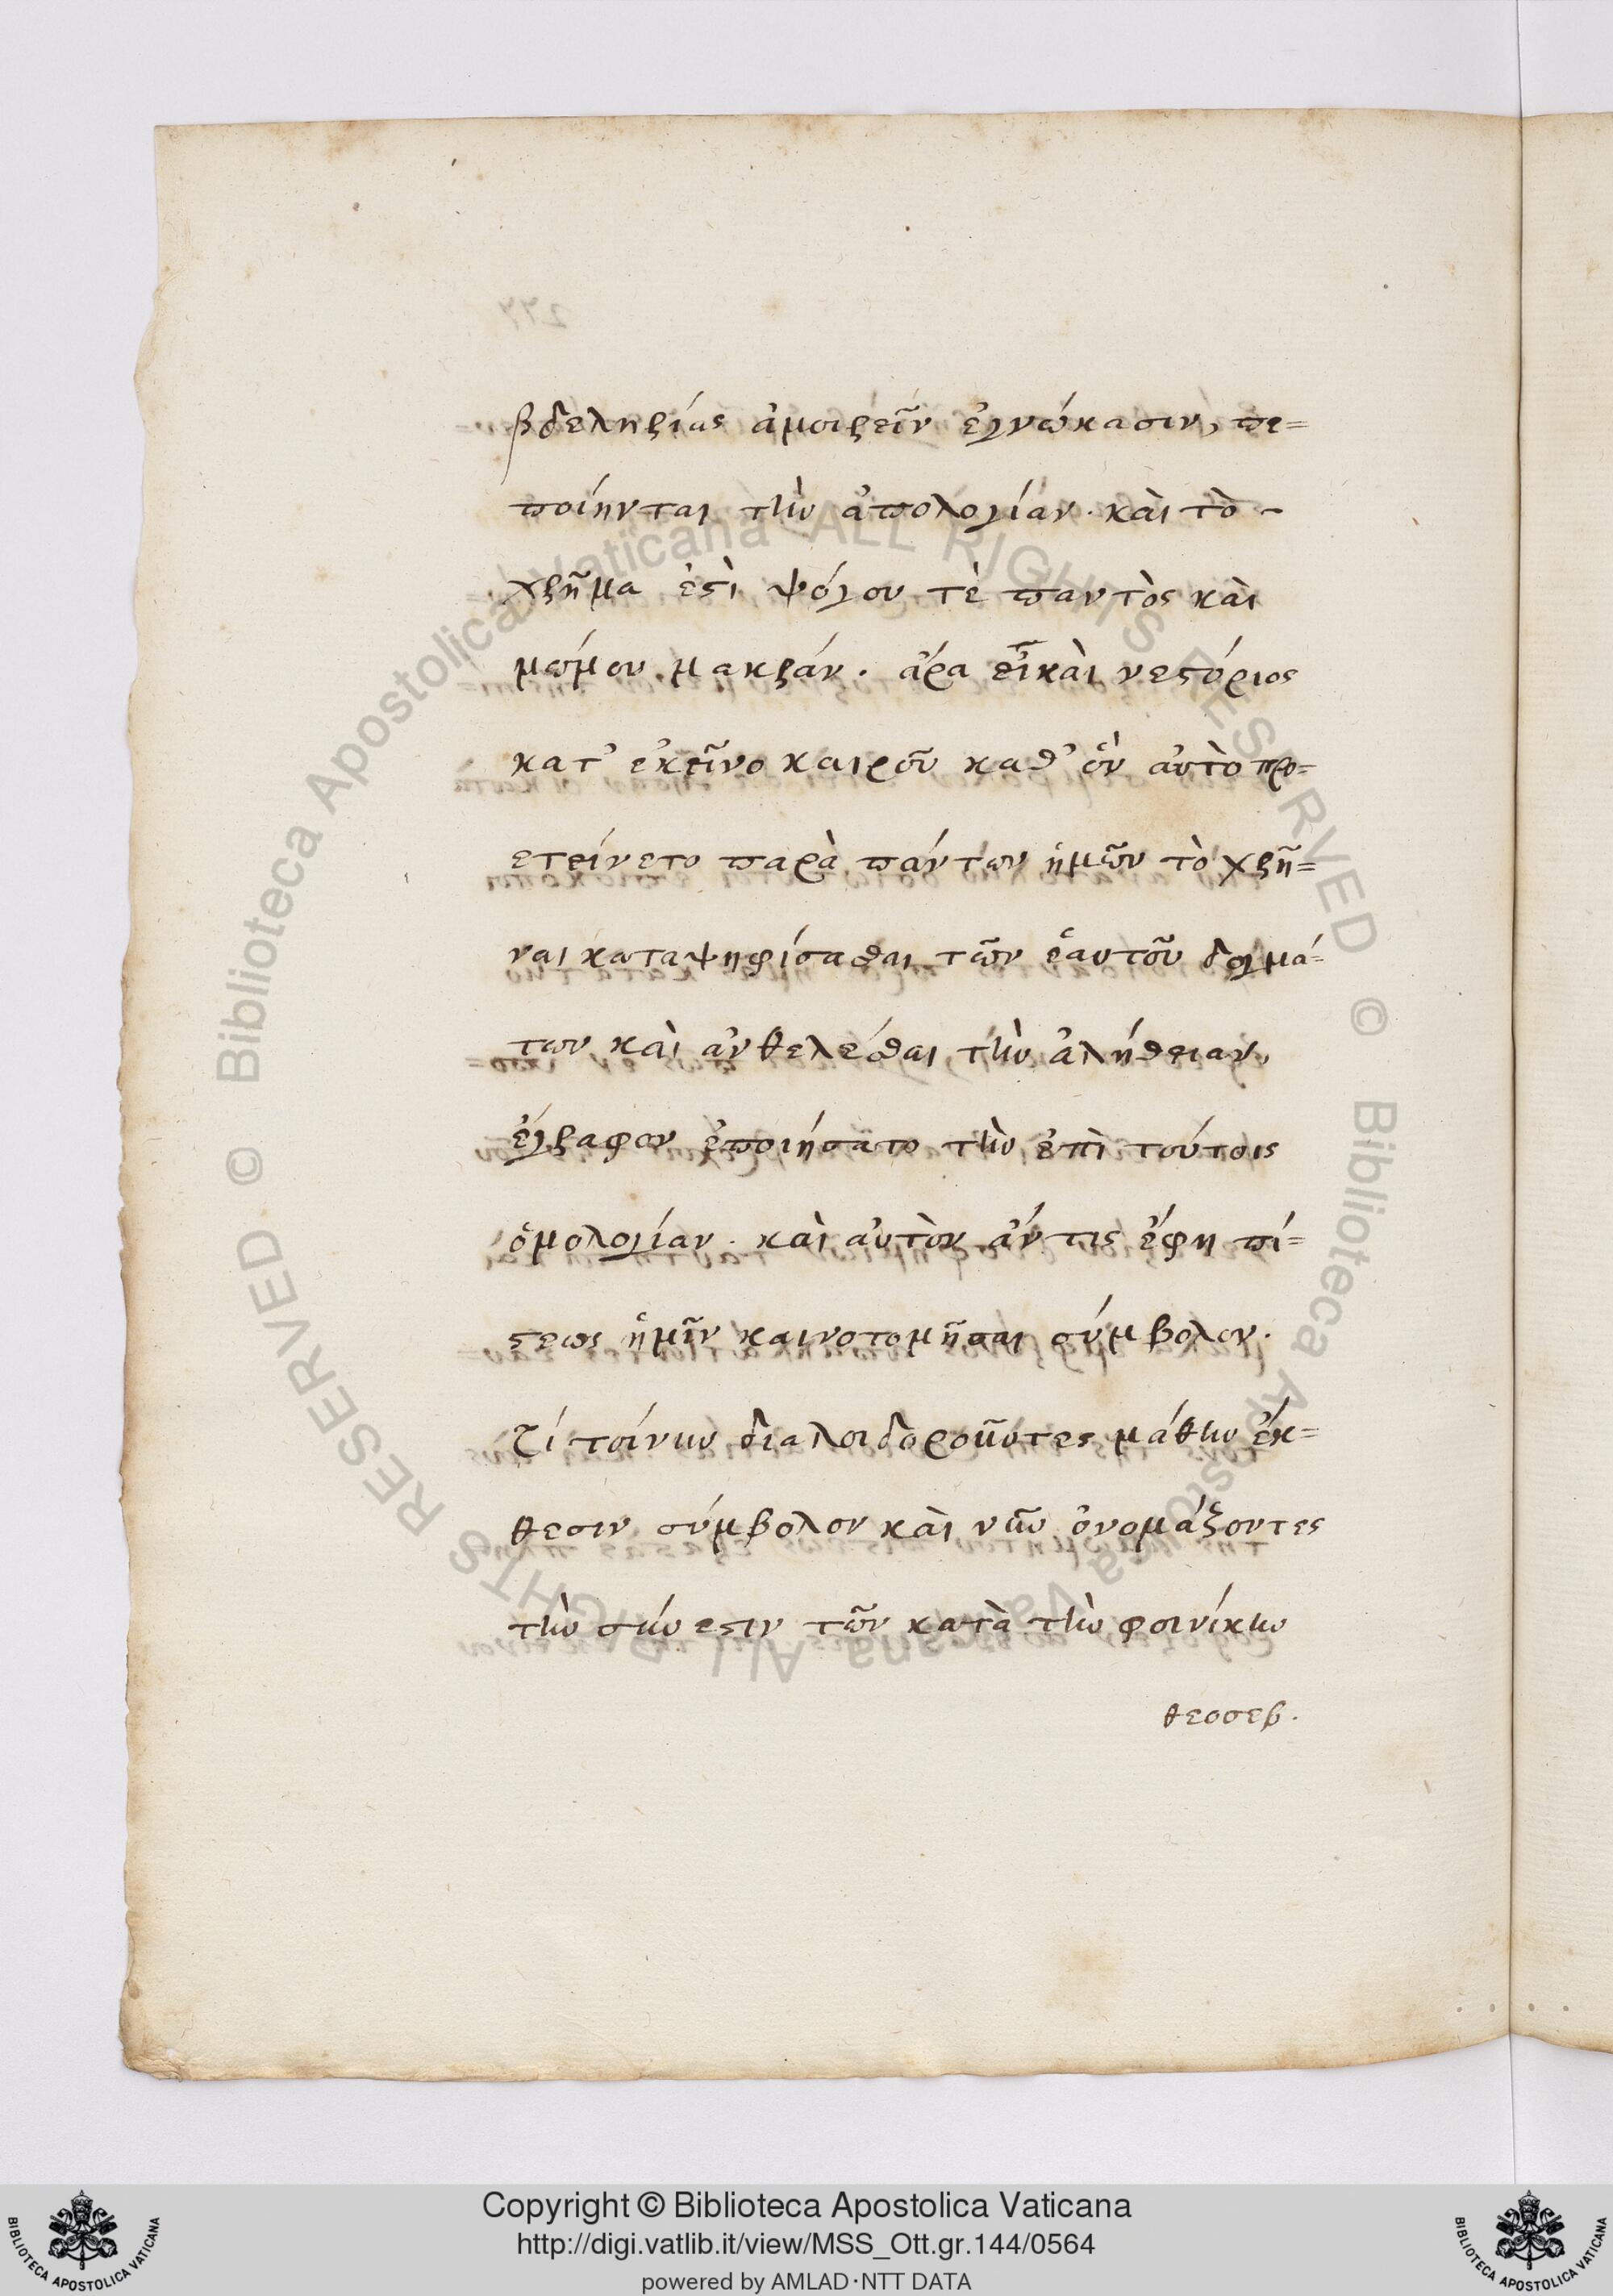 βδεληρίας ἀμοιρεῖν ἐγνώκασιν, πε=
ποίηνται τὴν ἀπολογίαν. καὶ τὸ -
χρῆμα ἐστὶ ψόγου τὲ παντὸς καὶ
μώμου μακράν. ἆρα εἰ καὶ νεστόριος
κατ' ἐκεῖνο καιροῦ καθ' ὃν αὐτὸ προ=
ετείνετο παρὰ πάντων ἡμῶν τὸ χρῆ=
ναι καταψηφίσασθαι τῶν ἑαυτοῦ δογμά=
των καὶ ἀνθελέσθαι τὴν ἀλήθειαν,
ἔγραφον ἐποιήσατο τὴν ἐπὶ τούτοις
ὁμολογίαν. καὶ αὐτὸν ἄν τις ἔφη πί=
στεως ἡμῖν καινοτομῆσαι σύμβολον.
τί τοίνυν διαλοιδοροῦντες μάθην ἔκ=
θεσιν σύμβολον καὶ νῦν ὀνομάζοντες
τὴν σύνεσιν τῶν κατὰ τὴν φοινίκην
θεοσεβ.
Copyright © Biblioteca Apostolica Vaticana
http://digi.vatlib.it/view/MSS_Ott.gr.144/0564
powered by AMLAD·NTT DATA
BIBLIOTECA APOSTOLICA VATICANA
BIBLIOTECA APOSTOLICA VATICANA
© Biblioteca Apostolica Vaticana ALL RIGHTS RESERVED
© Biblioteca Apostolica Vaticana ALL RIGHTS RESERVED